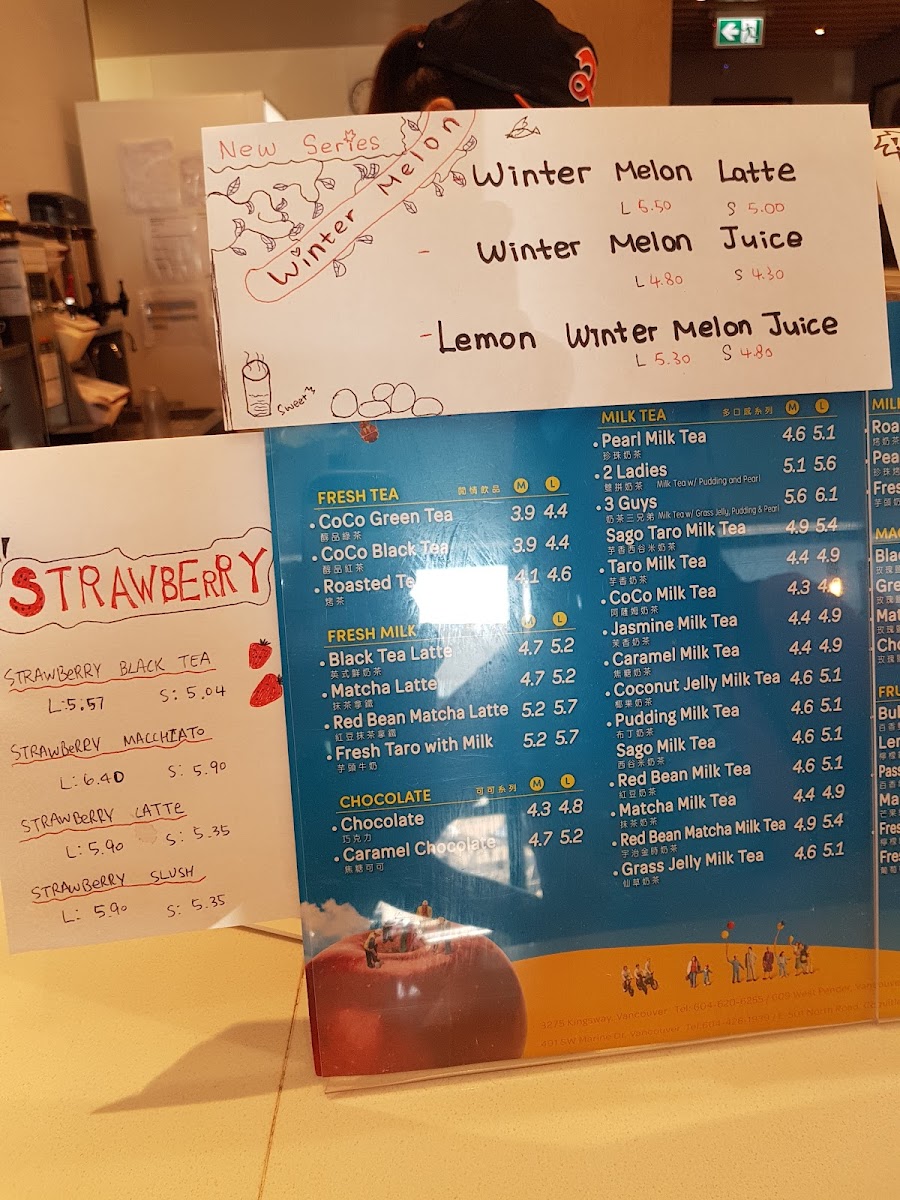 New Series
Winter Melon
Winter Melon Latte
L 5.50 S 5.00
- Winter Melon Juice
L 4.80 S 4.30
- Lemon Winter Melon Juice
L 5.30 S 4.80
Sweet~
STRAWBERRY
STRAWBERRY BLACK TEA
L: 5.57 S: 5.04
STRAWBERRY MACCHIATO
L: 6.40 S: 5.90
STRAWBERRY LATTE
L: 5.90 S: 5.35
STRAWBERRY SLUSH
L: 5.90 S: 5.35
FRESH TEA 閒情飲品 M L
CoCo Green Tea 3.9 4.4
醇品綠茶
CoCo Black Tea 3.9 4.4
醇品紅茶
Roasted 4.1 4.6
烤茶
FRESH MILK M L
Black Tea Latte 4.7 5.2
英式鮮奶茶
Matcha Latte 4.7 5.2
抹茶拿鐵
Red Bean Matcha Latte 5.2 5.7
紅豆抹茶拿鐵
Fresh Taro with Milk 5.2 5.7
芋頭牛奶
CHOCOLATE 可可系列 M L
Chocolate 4.3 4.8
巧克力
Caramel Chocolate 4.7 5.2
焦糖可可
MILK TEA 多口感系列 M L
Pearl Milk Tea 4.6 5.1
珍珠奶茶
2 Ladies 5.1 5.6
雙拼奶茶 Milk Tea w/ Pudding and Pearl
3 Guys 5.6 6.1
奶茶三兄弟 Milk Tea w/ Grass Jelly, Pudding & Pearl
Sago Taro Milk Tea 4.9 5.4
芋香西谷米奶茶
Taro Milk Tea 4.4 4.9
芋香奶茶
CoCo Milk Tea 4.3
阿薩姆奶茶
Jasmine Milk Tea 4.4 4.9
茉香奶茶
Caramel Milk Tea 4.4 4.9
焦糖奶茶
Coconut Jelly Milk Tea 4.6 5.1
椰果奶茶
Pudding Milk Tea 4.6 5.1
布丁奶茶
Sago Milk Tea 4.6 5.1
西谷米奶茶
Red Bean Milk Tea 4.6 5.1
紅豆奶茶
Matcha Milk Tea 4.4 4.9
抹茶奶茶
Red Bean Matcha Milk Tea 4.9 5.4
宇治金時奶茶
Grass Jelly Milk Tea 4.6 5.1
仙草奶茶
3275 Kingsway, Vancouver Tel: 604-620-6255 / 609 West Pender, Vancouver